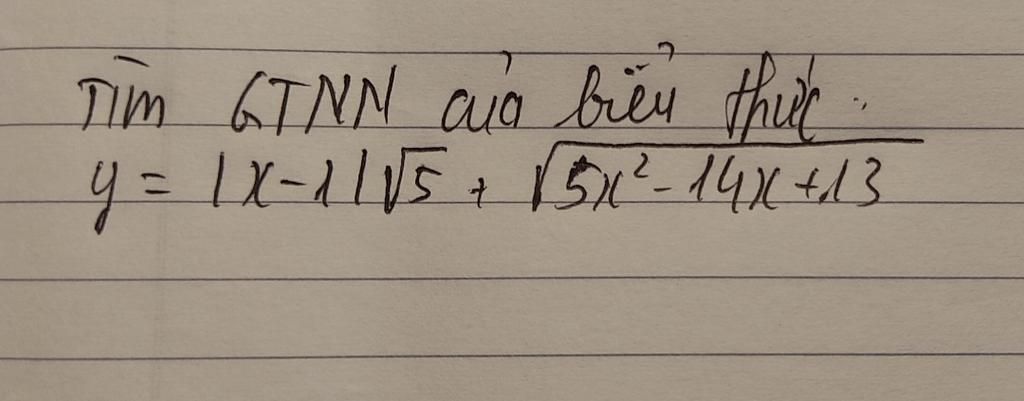 Tìm GTNN của biểu thức.
y = |x-1|√5 + √5x²-14x+13